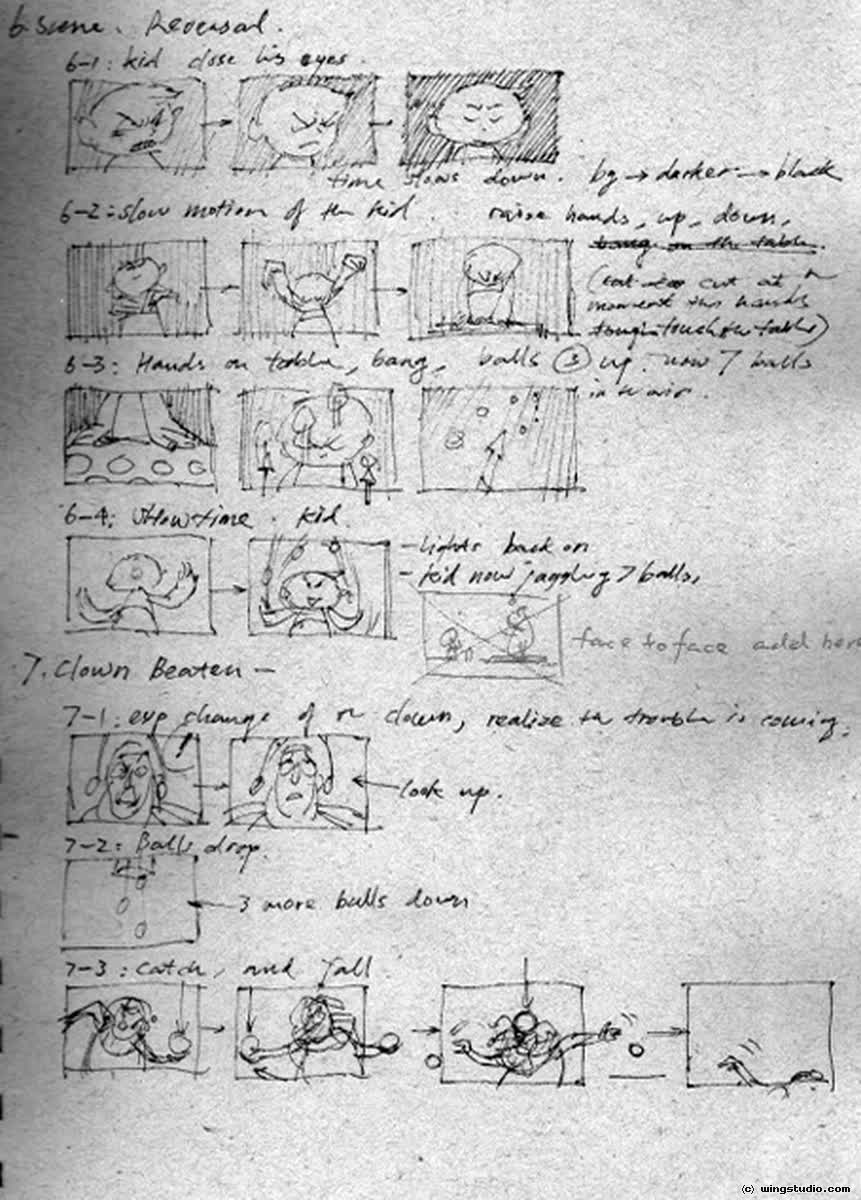 6 Scene. Reversal.
6-1: kid close his eyes.
time slows down. bg → darker → black
6-2: slow motion of the kid. raise hands, up, down,
bang on the table.
cut at
moment the hands
touch the table)
6-3: Hands on table, bang, balls ③ up. now 7 balls
in the air.
6-4: Showtime. kid.
- lights back on
- kid now juggling 7 balls,
face to face add here
7. Clown Beaten -
7-1: exp change of the clown, realize the trouble is coming.
look up.
7-2: Balls drop.
3 more balls down
7-3: catch, and fall.
(c) wingstudio.com